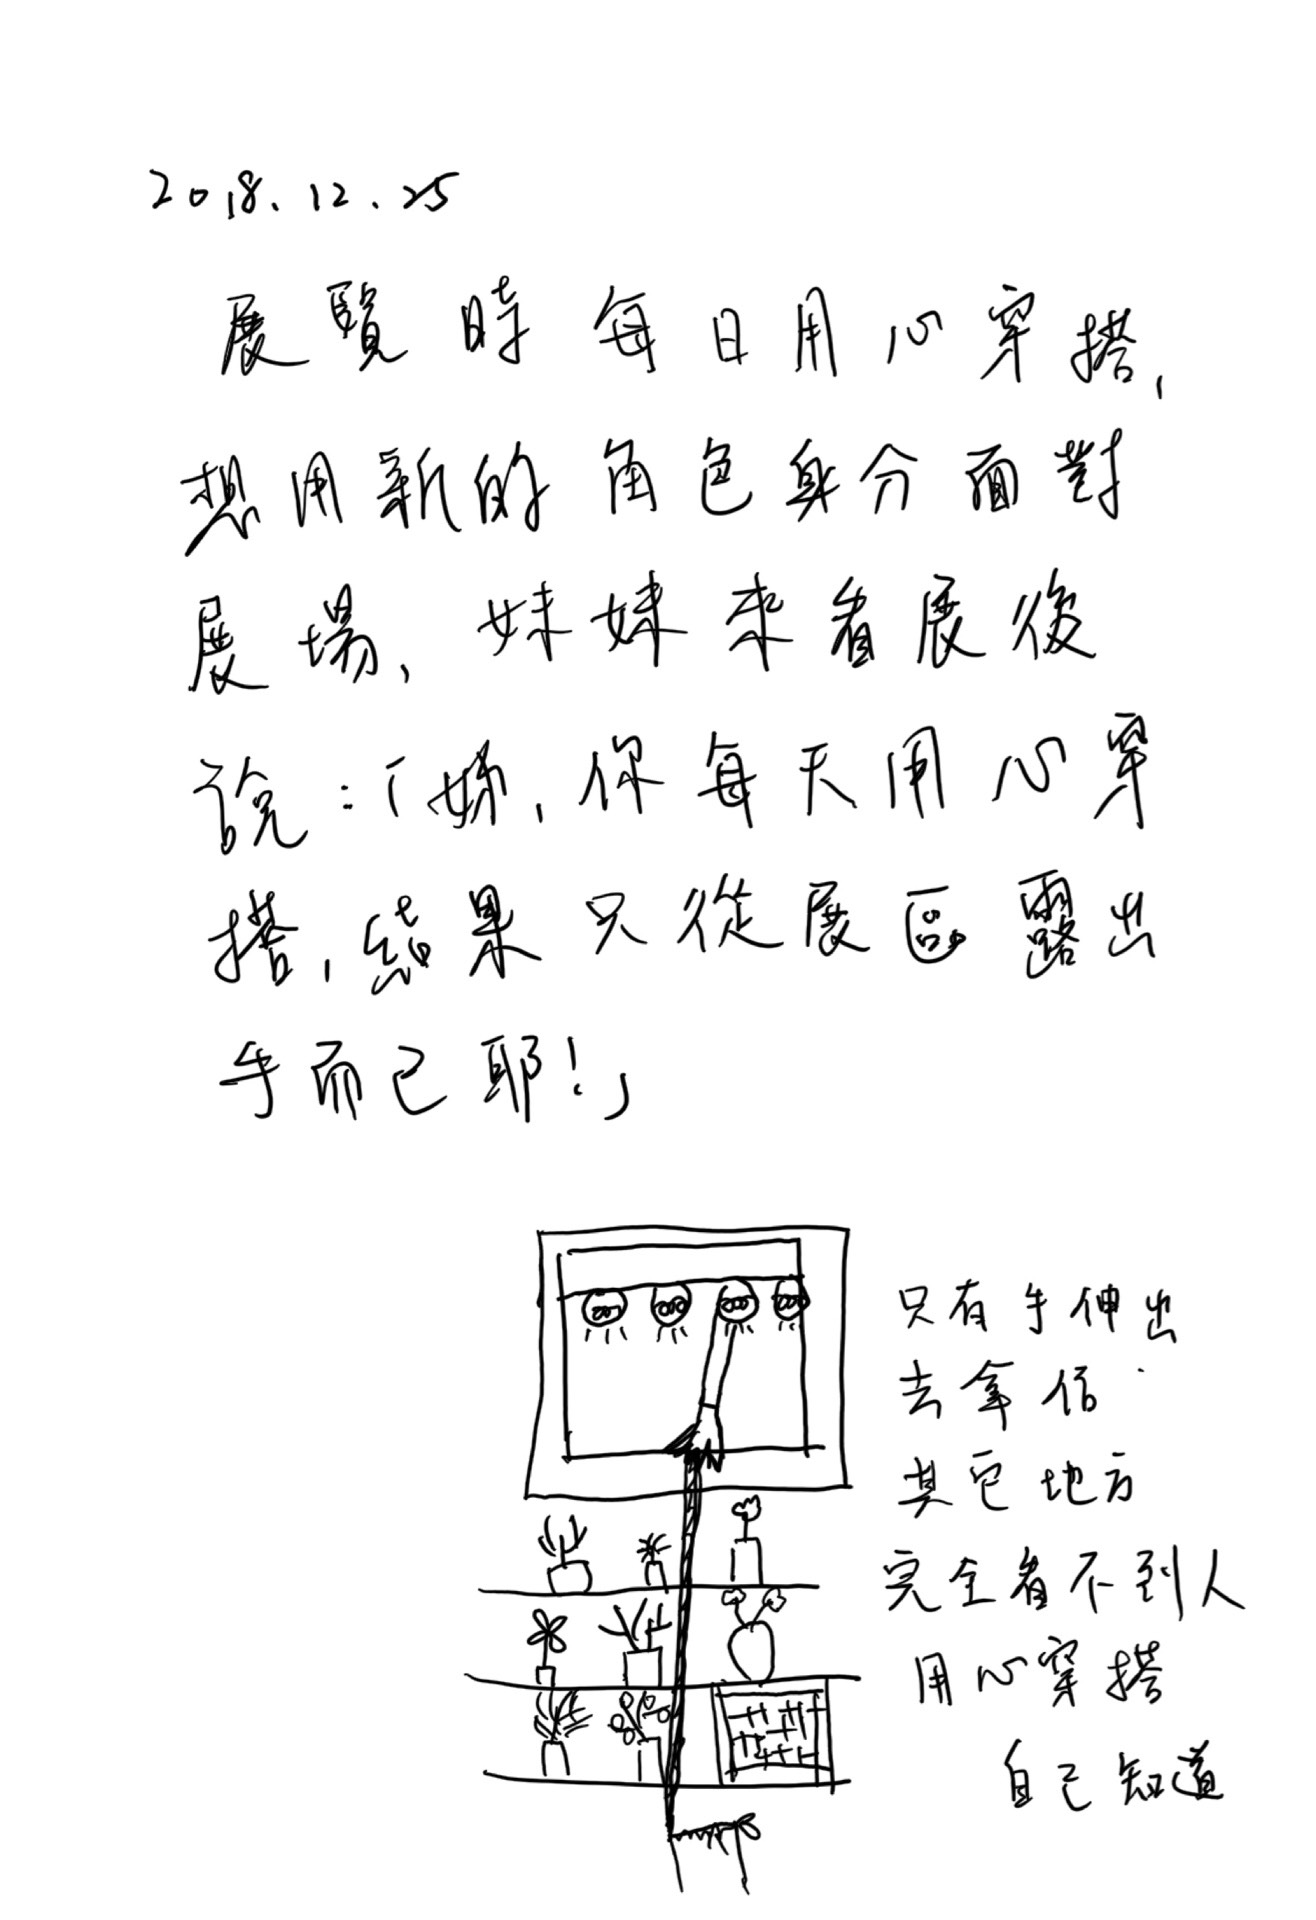 2018.12.25
展覽時每日用心穿搭,
想用新的角色身分面對
展場,妹妹來看展後
說:「姊,你每天用心穿
搭,結果只從展區露出
手而已耶!」
只有手伸出
去拿
其它地方
完全看不到人
用心穿搭
自己知道